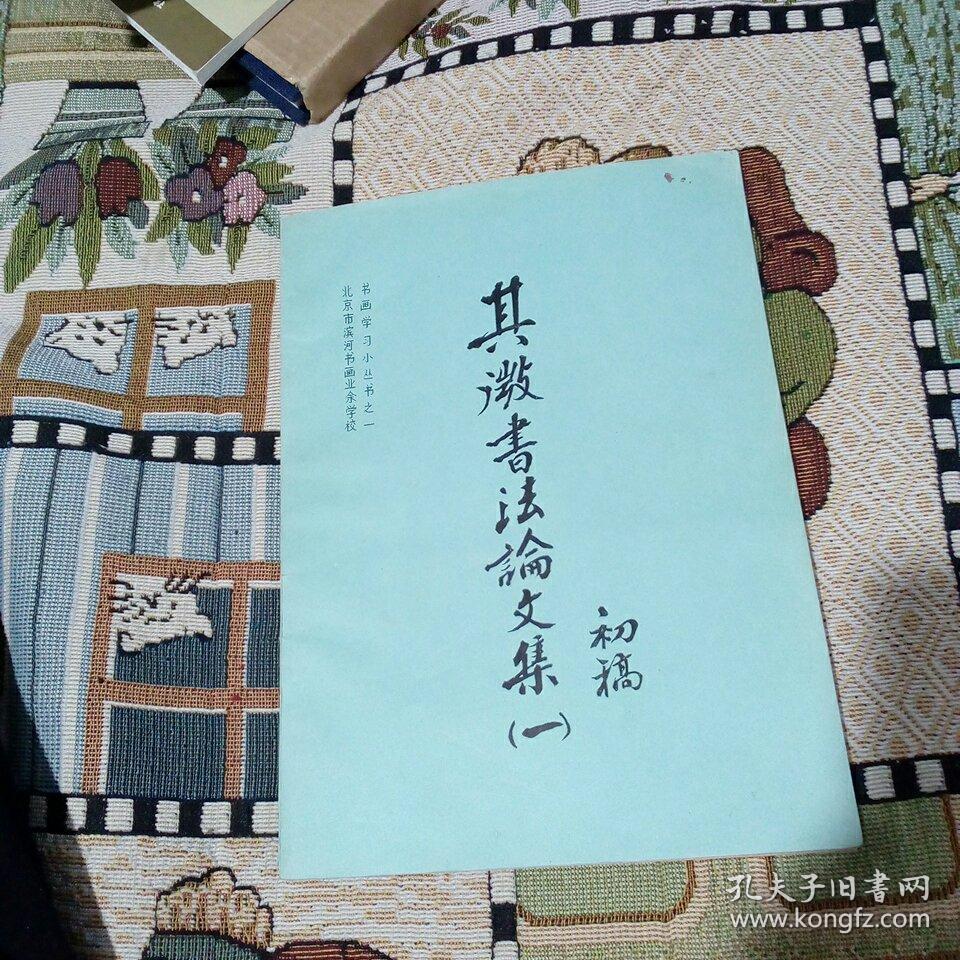 书画学习小丛书之一
北京市滨河书画业余学校
其微書法論文集(一)
初稿
孔夫子旧書网
www.kongfz.com